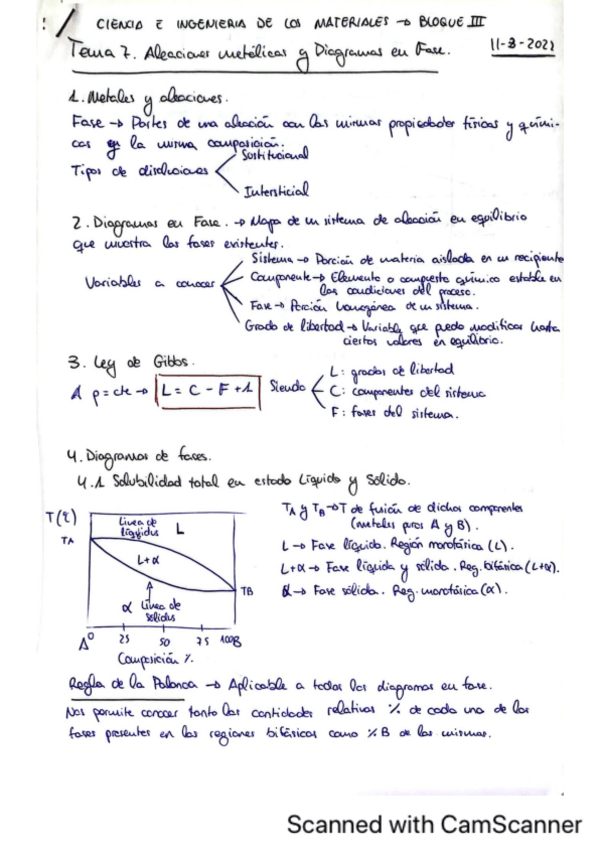 CIENCIA E INGENIERIA DE LOS MATERIALES → BLOQUE III
Tema 7. Aleaciones metálicas y Diagramas en Fase.
11-3-2022
1. Metales y aleaciones.
Fase → Partes de una aleación con las mismas propiedades físicas y quími-
cas en la misma composición.
Sustitucional
Tipos de disoluciones
Intersticial
2. Diagramas en Fase. → Mapa de un sistema de aleación en equilibrio
que muestra las fases existentes.
Sistema → Porción de materia aislada en un recipiente
Variables a conocer
Componente → Elemento o compuesto químico estable en
las condiciones del proceso.
Fase → Porción homogénea de un sistema.
Grado de libertad → Variable que puedo modificar hasta
ciertos valores en equilibrio.
3. Ley de Gibbs.
A p=cte → L = C - F + 1 Siendo
L: grados de libertad
C: componentes del sistema
F: fases del sistema.
4. Diagramas de fases.
4.1 Solubilidad total en estado líquido y sólido.
T(ºC)
TA
Línea de
líquidus
L
L+α
α
Línea de
solidus
TB
A 0 25 50 75 100B
Composición %
TA y TB → T de fusión de dichos componentes
(metales puros A y B).
L → Fase líquida. Región monofásica (L).
L+α → Fase líquida y sólida. Reg. bifásica (L+α).
α → Fase sólida. Reg. monofásica (α).
Regla de la Palanca → Aplicable a todos los diagramas en fase.
Nos permite conocer tanto las cantidades relativas % de cada una de las
fases presentes en las regiones bifásicas como %B de las mismas.
Scanned with CamScanner